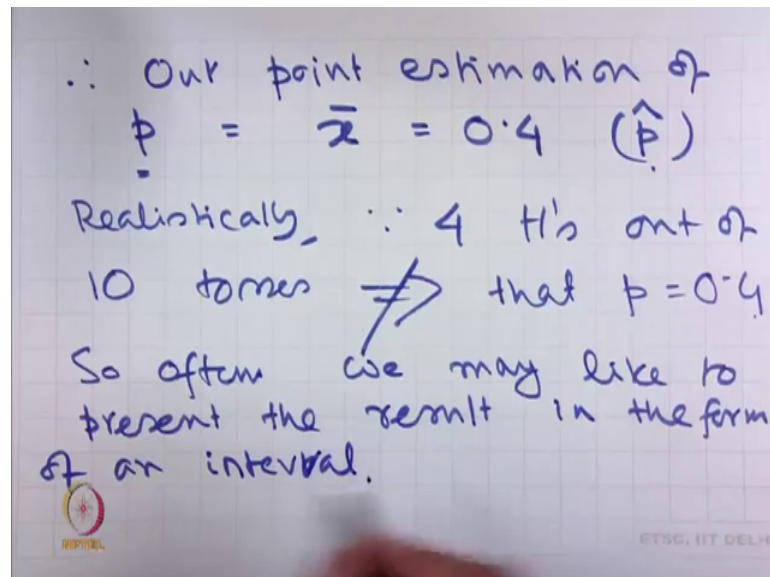 ∴ Our point estimation of
p = x̄ = 0.4 (p̂)
Realistically, ∵ 4 H's out of
10 tosses ⇏ that p = 0.4
So often we may like to
present the result in the form
of an interval.
NPTEL
ETSC, IIT DELH